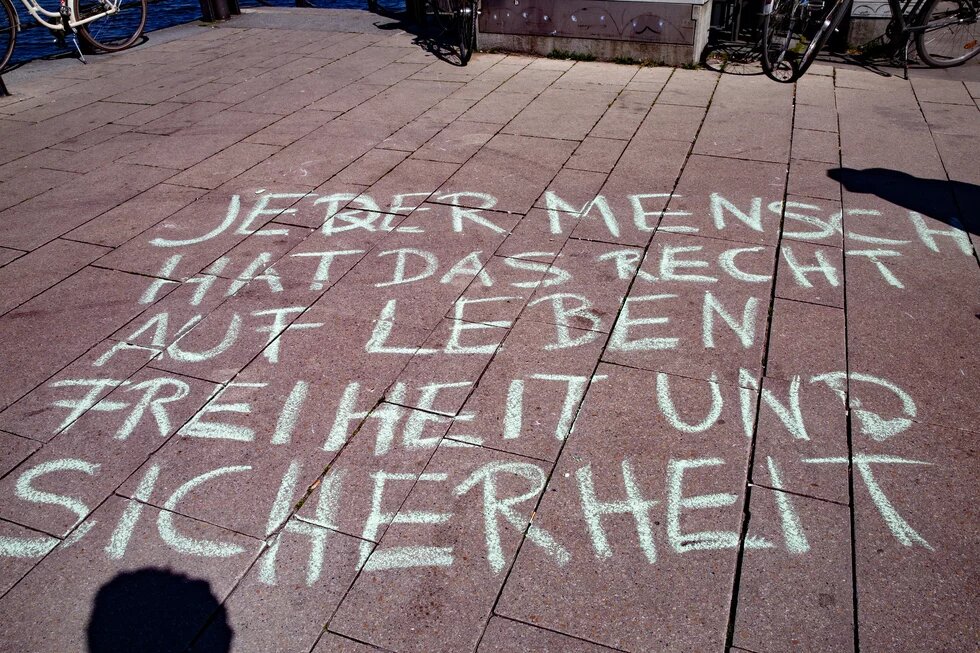 JEDER MENSCH
HAT DAS RECHT
AUF LEBEN
FREIHEIT UND
SICHERHEIT